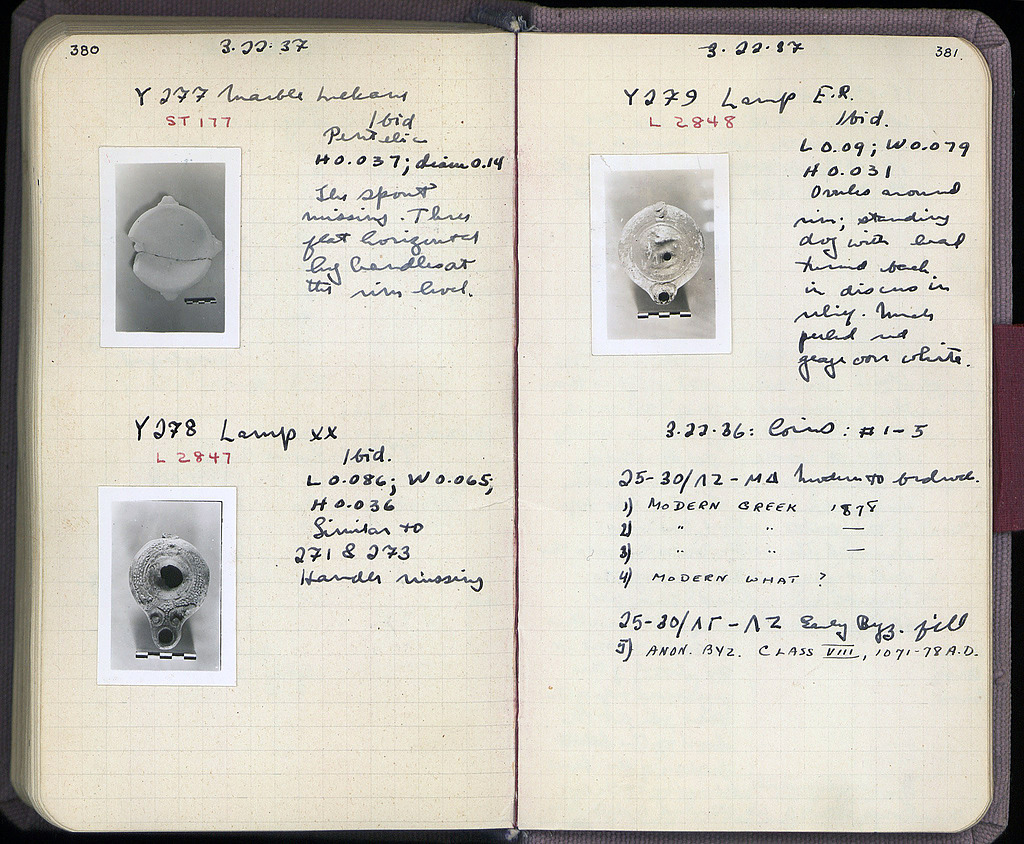 380
3·22·37
Y 277 Marble Lekane
ST 177
Ibid
Pentelic
H 0.037; diam 0.14
The spout
missing. Three
flat horizontal
lug handles at
the rim level.
Y 278 Lamp XX
L 2847
Ibid.
L 0.086; W 0.065;
H 0.036
Similar to
271 & 273
Handle missing
3·22·37
381.
Y 279 Lamp E.R.
L 2848
Ibid.
L 0.09; W 0.079
H 0.031
Ovules around
rim; standing
dog with head
turned back
in discus in
relief. Much
peeled red
glaze over white.
3·22·36: Coins: #1-5
25-30/ΛΖ-ΜΔ Modern to bedrock.
1) MODERN GREEK 1878
2) " " —
3) " " —
4) MODERN WHAT ?
25-30/ΛΓ-ΛΖ Early Byz. fill
5) ANON. BYZ. CLASS VIII, 1071-78 A.D.